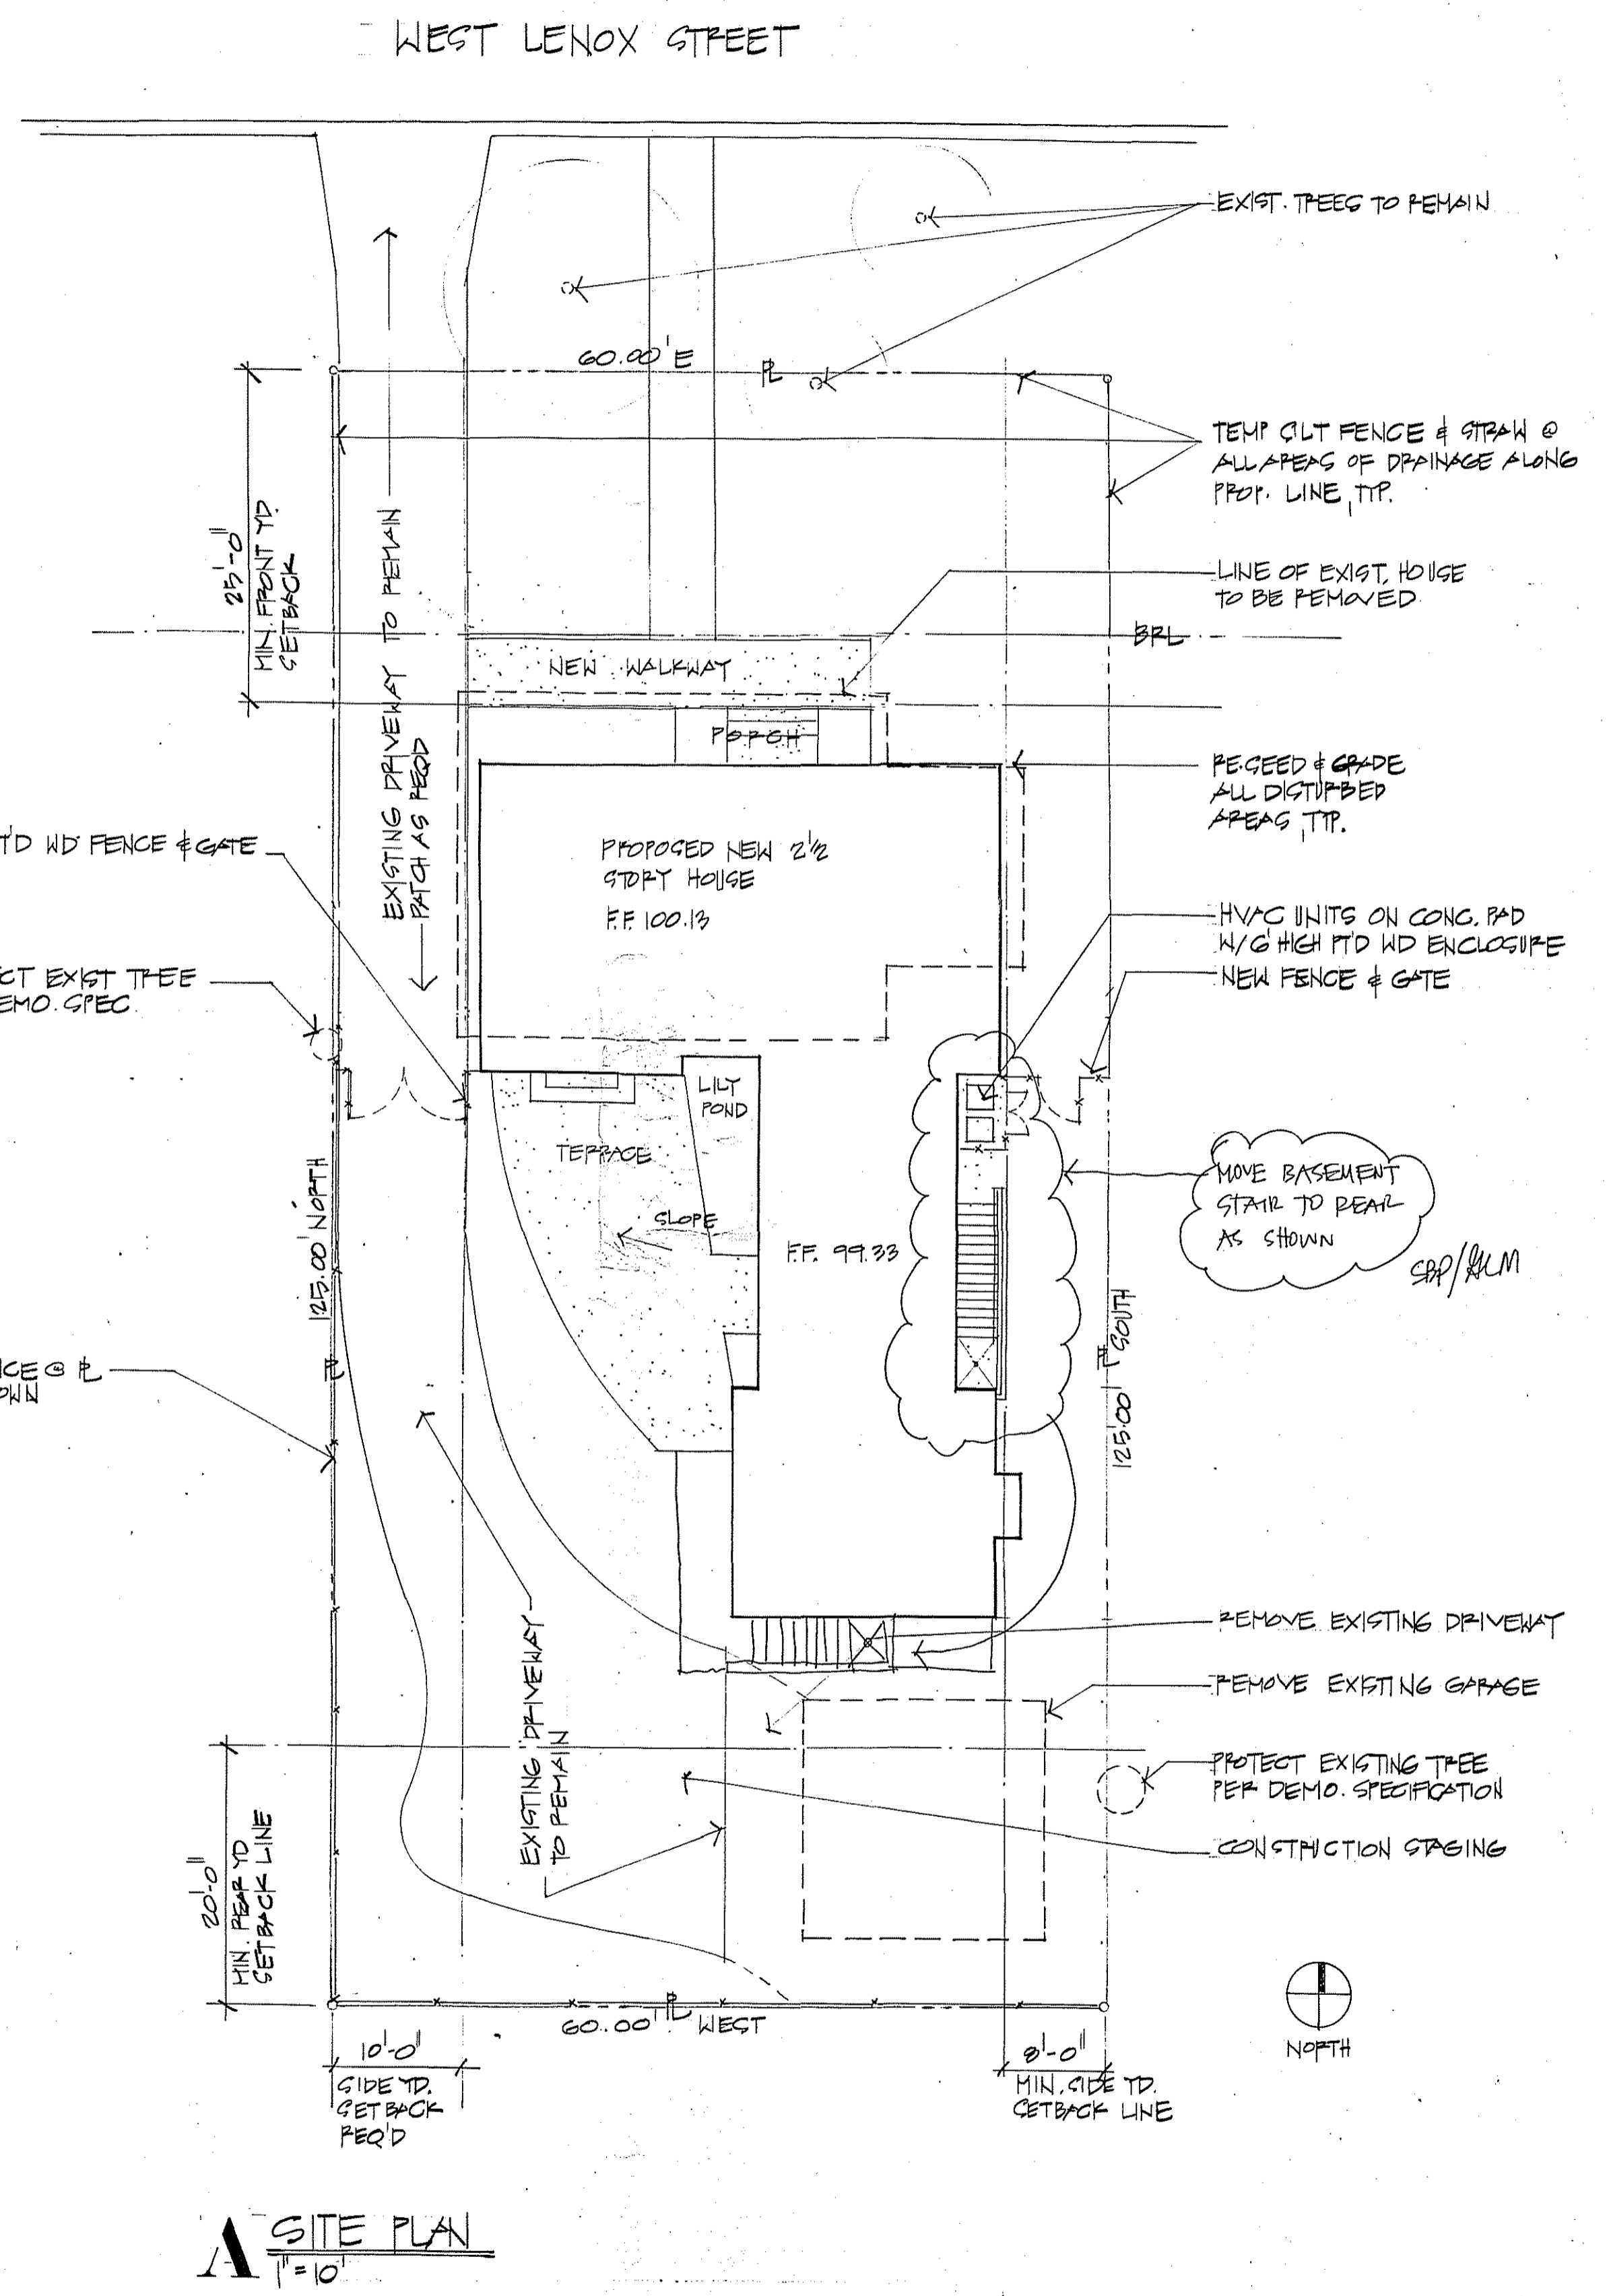 WEST LENOX STREET
EXIST. TREES TO REMAIN
60.00' E
PL
TEMP SILT FENCE & STRAW @
ALL AREAS OF DRAINAGE ALONG
PROP. LINE, TYP.
25'-0"
MIN. FRONT YD.
SETBACK
EXISTING DRIVEWAY TO REMAIN
PATCH AS REQD
LINE OF EXIST. HOUSE
TO BE REMOVED
BRL
NEW WALKWAY
PORCH
RE-SEED & GRADE
ALL DISTURBED
AREAS, TYP.
T'D WD FENCE & GATE
PROPOSED NEW 2 1/2
STORY HOUSE
F.F. 100.13
HVAC UNITS ON CONC. PAD
W/ 6' HIGH PT'D WD ENCLOSURE
NEW FENCE & GATE
CT EXIST TREE
EMO. SPEC.
LILY
POND
TERRACE
SLOPE
F.F. 99.33
MOVE BASEMENT
STAIR TO REAR
AS SHOWN
SBP/
125.00' NORTH
PL
125.00' PL SOUTH
CE @ PL
OWN
REMOVE EXISTING DRIVEWAY
REMOVE EXISTING GARAGE
EXISTING DRIVEWAY
TO REMAIN
PROTECT EXISTING TREE
PER DEMO. SPECIFICATION
CONSTRUCTION STAGING
20'-0"
MIN. REAR YD
SETBACK LINE
60.00' PL WEST
10'-0"
SIDE YD.
SETBACK
REQ'D
8'-0"
MIN. SIDE YD.
SETBACK LINE
NORTH
A SITE PLAN
1" = 10'